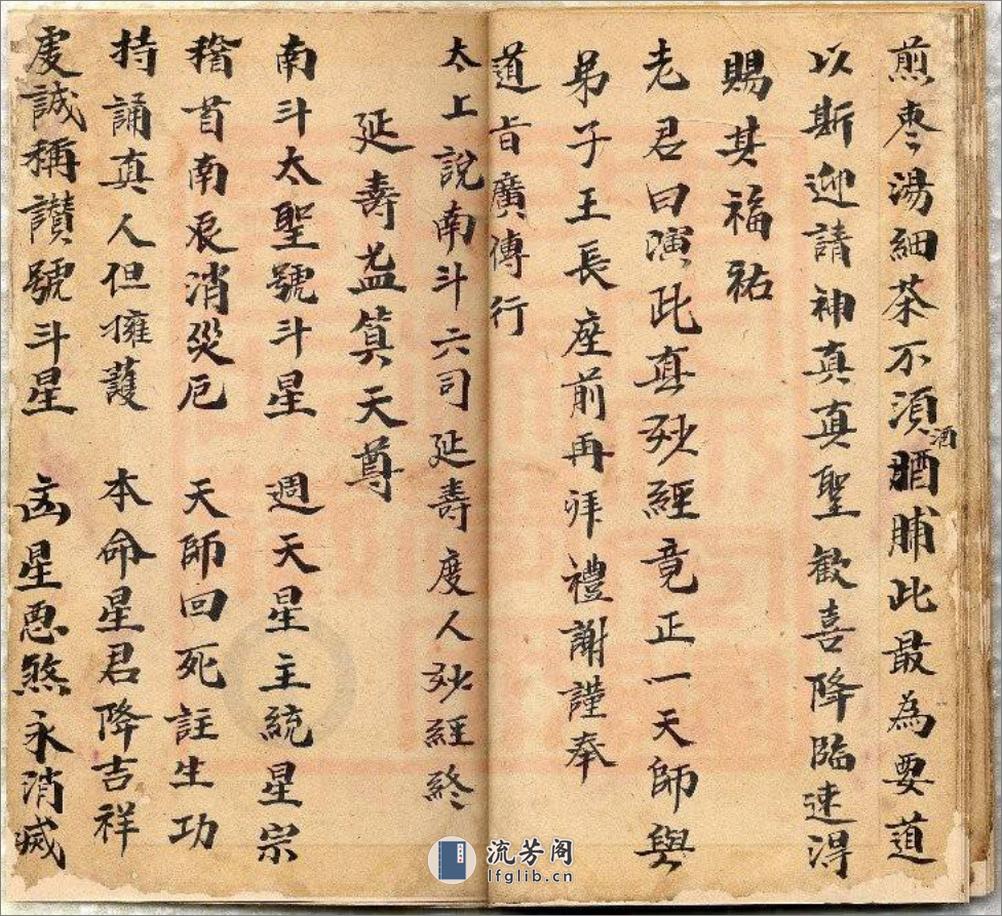 煎枣湯細茶不須酒脯此最為要道
酒
以斯迎請神真真聖歡喜降臨速得
賜其福祐
老君曰演此真玅經竟正一天師與
弟子王長座前再拜禮謝謹奉
道旨廣傳行
太上說南斗六司延壽度人玅經終
延壽益算天尊
南斗太聖號斗星 週天星主統星宗
稽首南辰消災厄 天師回死註生功
持誦真人但擁護 本命星君降吉祥
虔誠稱讃號斗星 凶星惡煞永消滅
流芳阁
lfglib.cn